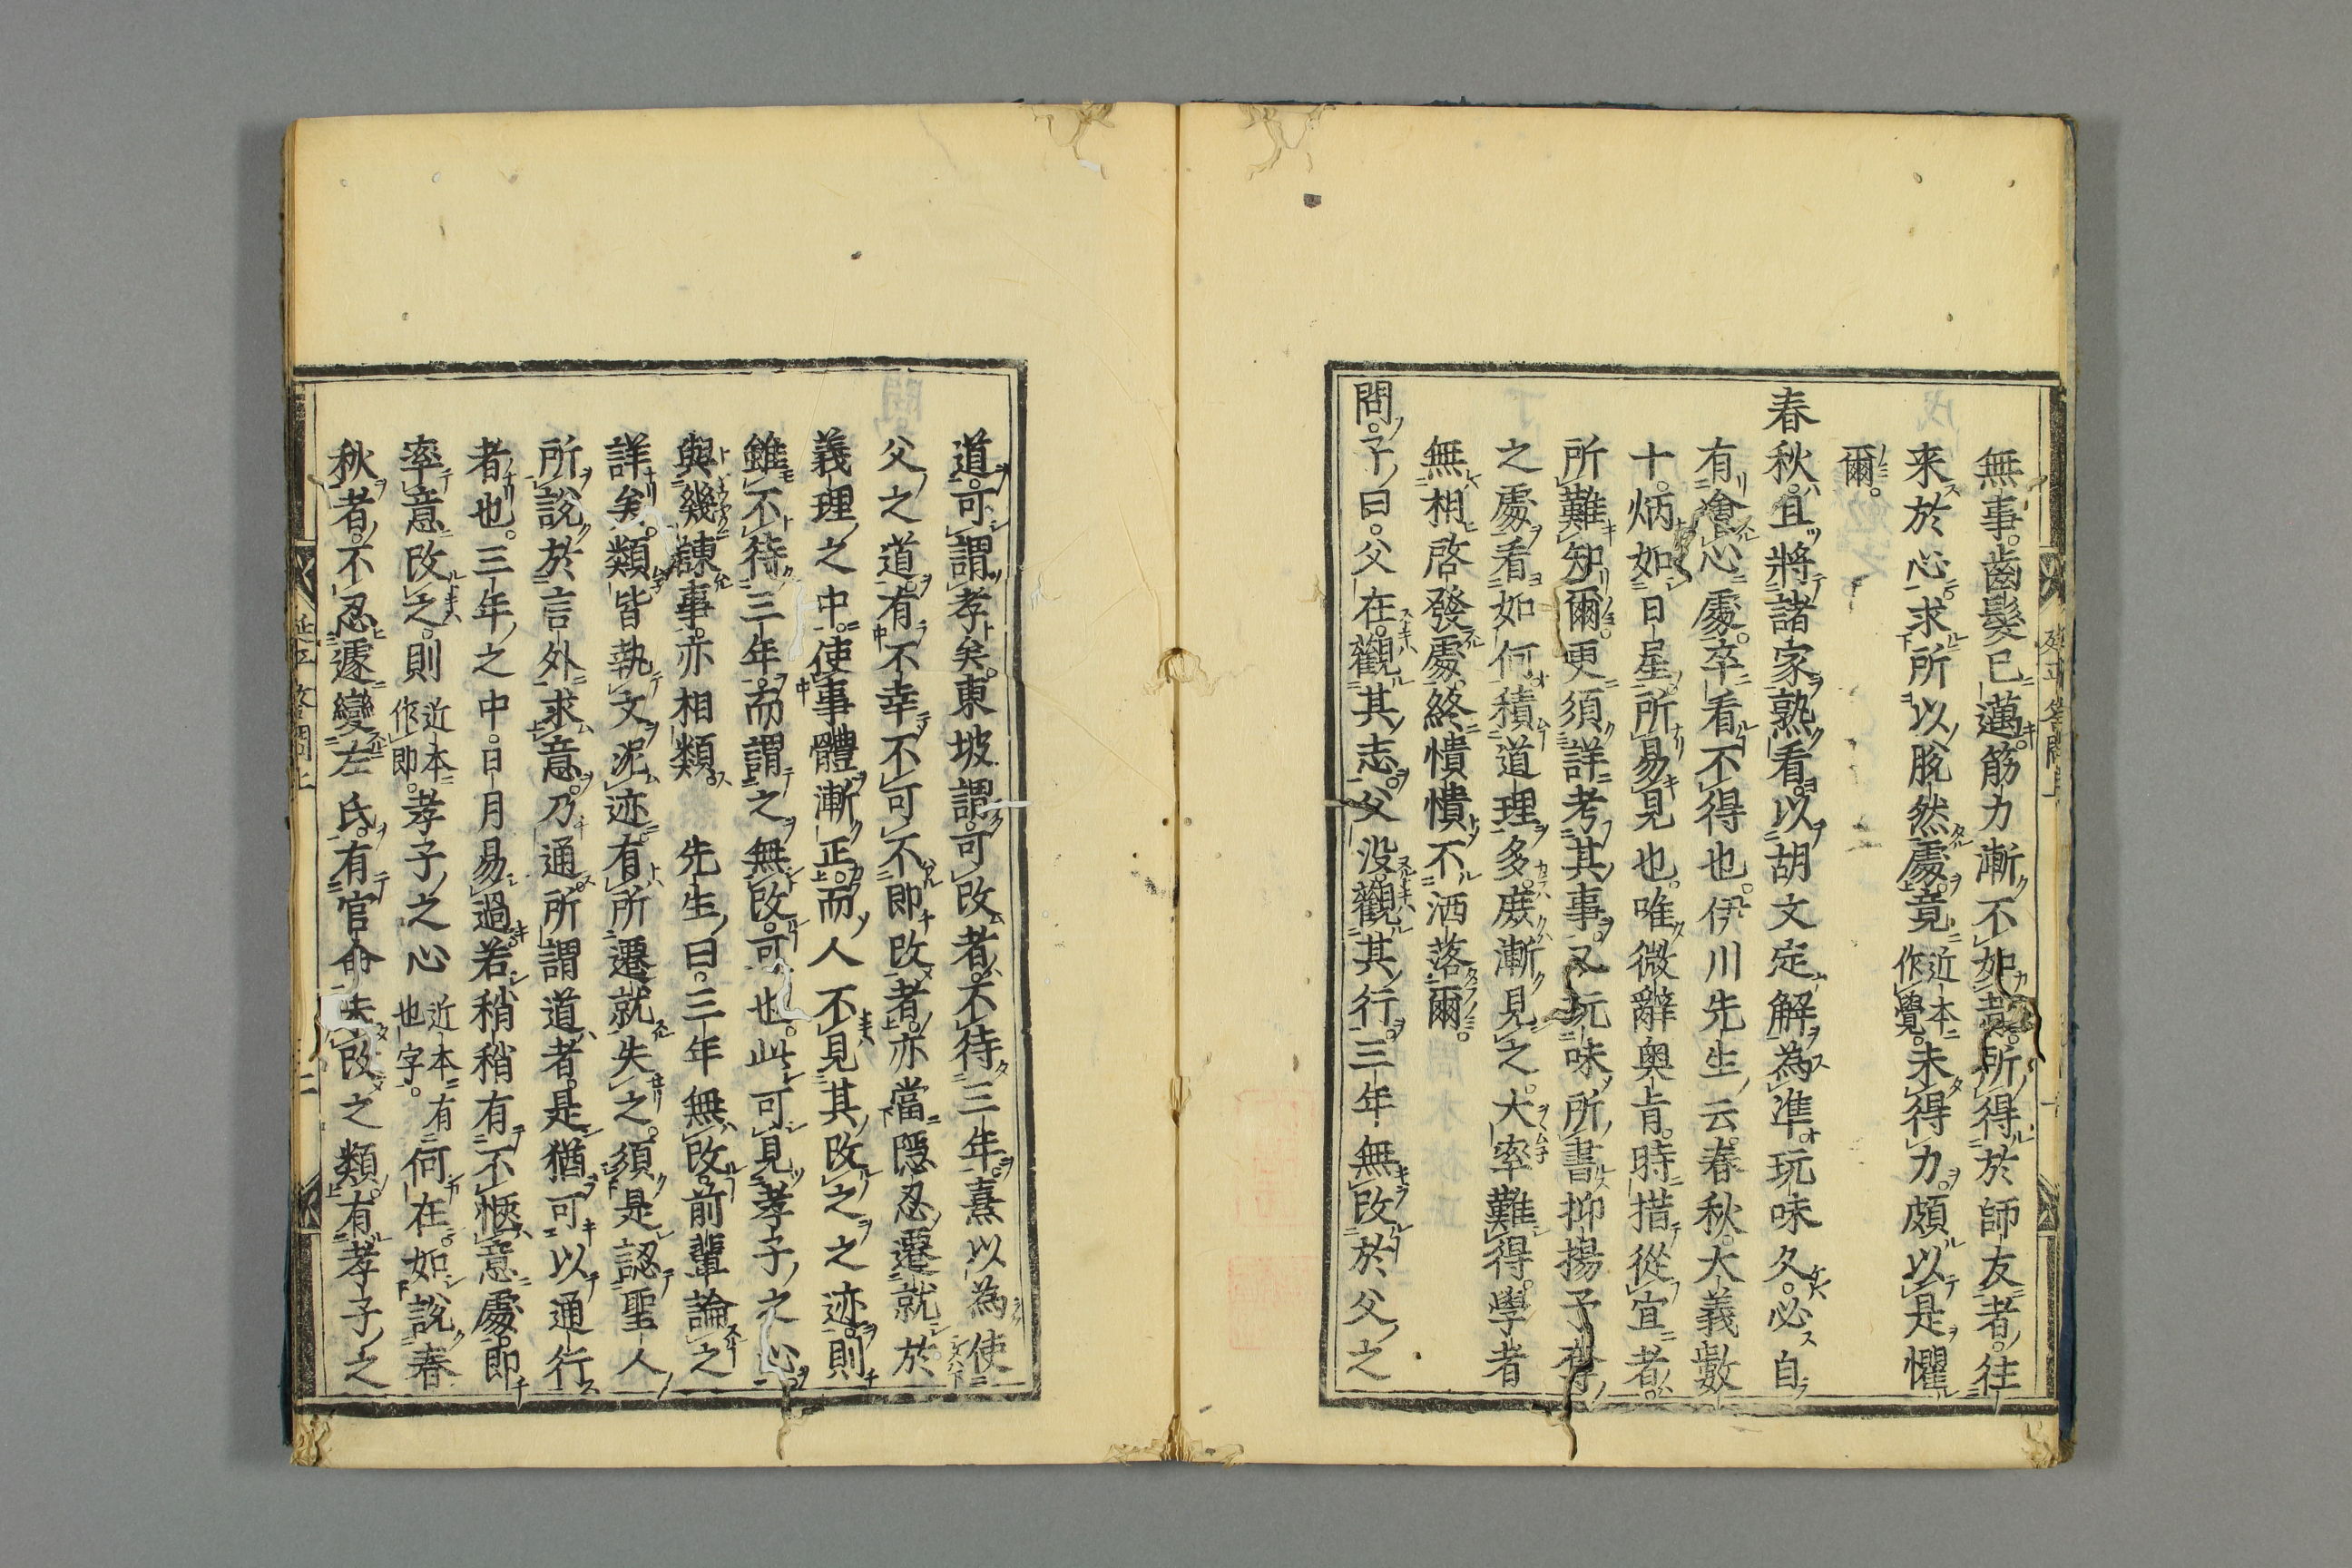 無事。齒髮已邁。筋力漸不如昔。所得於師友者。往
来於心。求所以脫然處。竟近本作覺。未得力。頗以是懼
爾。
春秋。且將諸家熟看。以胡文定解為準。玩味久。必自
有會心處。卒看不得也。伊川先生云。春秋。大義數
十。炳如日星。所易見也。唯微辭奧旨。時措從宜者。
所難知爾。更須詳考其事。又玩味所書抑揚予奪
之處。看如何。積道理多。庶漸見之。大率難得。學者
無相啓發處。終憒憒不洒落爾。
問。子曰。父在。觀其志。父没。觀其行。三年無改於父之
道。可謂孝矣。東坡謂。可改者。不待三年。熹以為使
父之道。有不幸不可不即改者。亦當隱忍遷就。於
義理之中。使事體漸正。而人不見其改之之迹。則
雖不待三年。而謂之無改。可也。此可見孝子之心。
與幾諫事。亦相類。 先生曰。三年無改。前輩論之
詳矣。類皆執文泥迹。有所遷就失之。須是認聖人
所說於言外求意。乃通。所謂道者。是猶可以通行
者也。三年之中。日月易過。若稍稍有不愜意處。即
率意改之。則近本作即。孝子之心近本有也字。何在。如說春
秋者。不忍遽變左氏。有官命未改之類。有孝子之
延平答問上 一
延平答問上 二